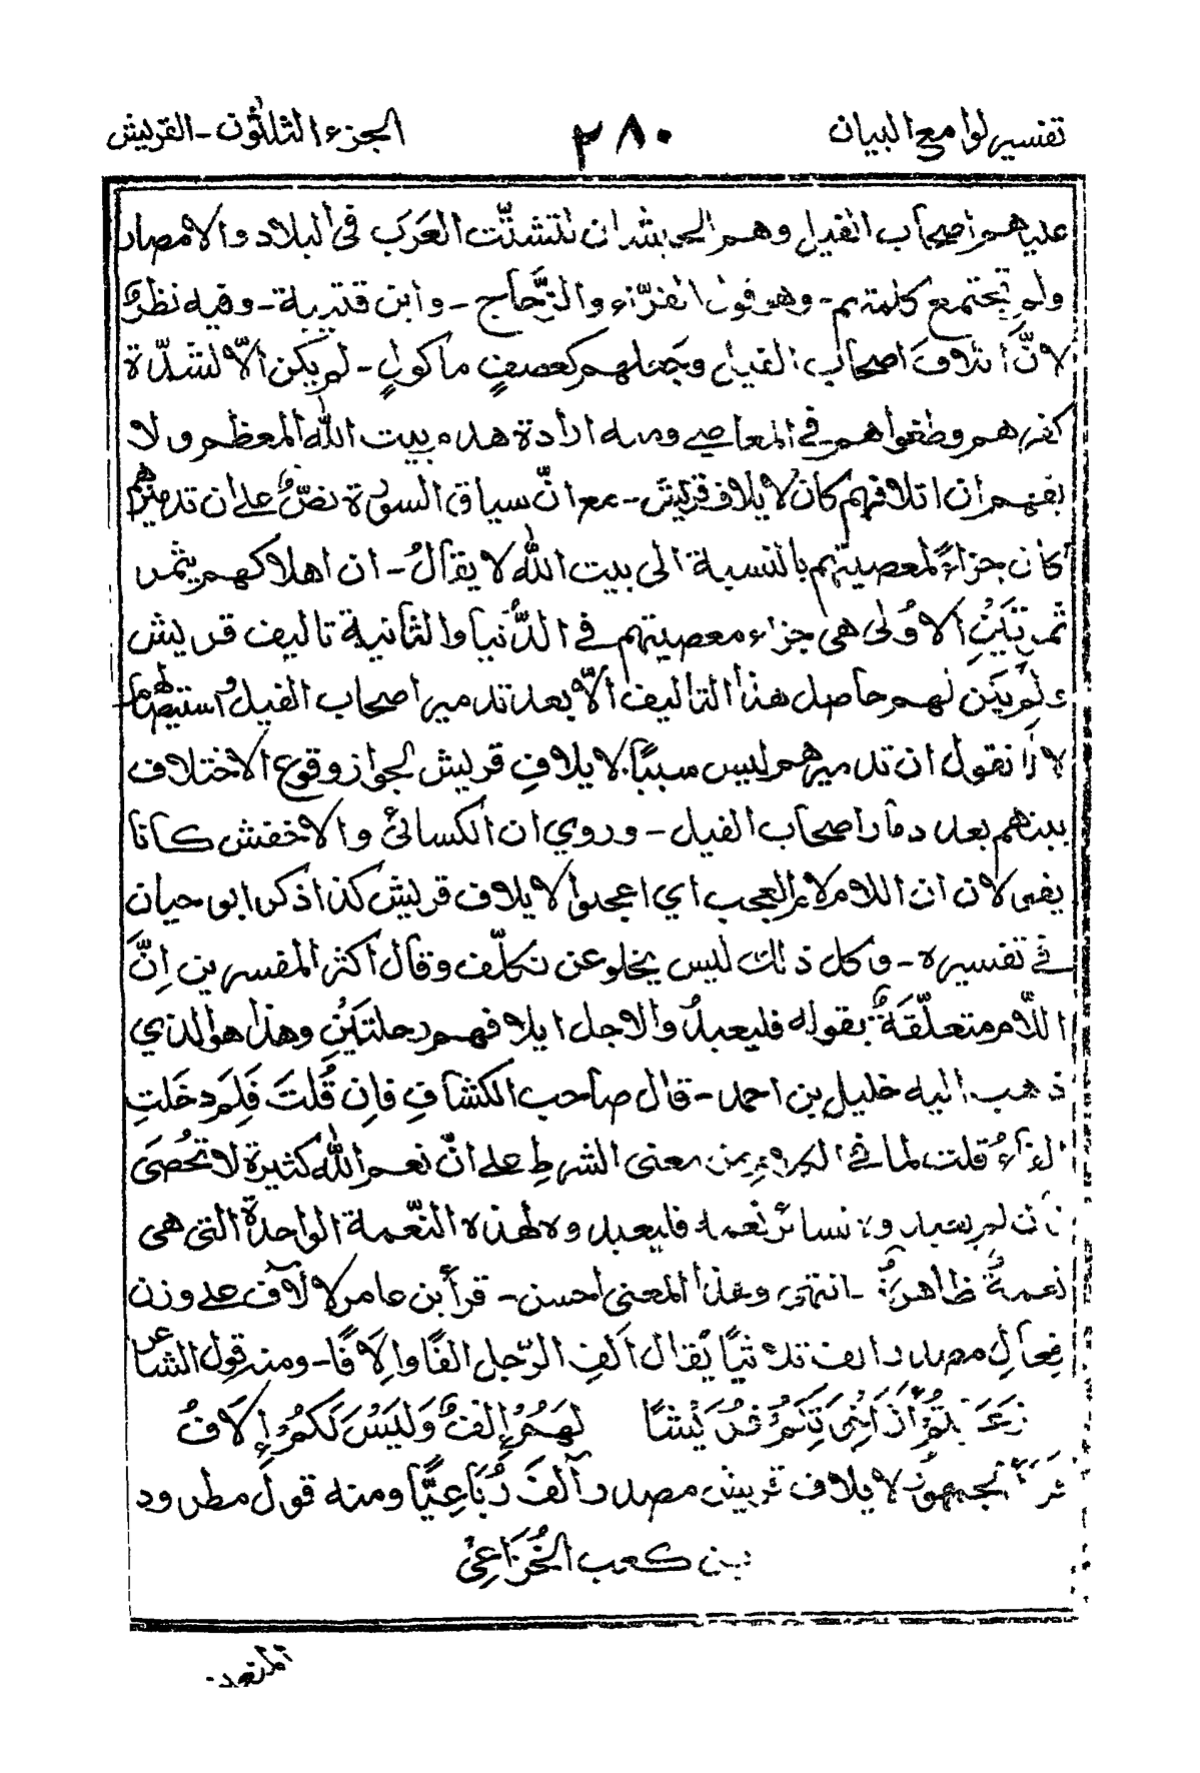 تفسير لوامع البيان ٢٨٠ الجزء الثلٰثون - القريش
عليهم اصحاب الفيل وهم الحبشة ان تتشتّت العَرَب في البلاد والامصار
ولم تجتمع كلمتهم - وهو قول الفرّاء والزَّجاج - وابن قتيبة - وفيه نظرٌ
لانَّ اتلافَ اصحاب الفيل وجعلهم كعصفٍ مأكولٍ - لم يكن الّا لشدّة
كفرهم وطغواهم في المعاصي ومنه ارادة هدم بيت الله المعظم ولا
يفهم ان اتلافهم كان لايلاف قريش - مع انّ سياق السورة نصٌّ على ان تدميرهم
كان جزاءً لمعصيتهم بالنسبة الى بيت الله لا يقالُ - ان اهلاكهم يثمر
ثمرتَيْنِ الاولٰى هي جزاء معصيتهم في الدُّنيا والثانية تاليف قريش
ولم يكن لهم حاصل هذا التاليف الّا بعد تدمير اصحاب الفيل و
لانا نقول ان تدميرهم ليس سببًا لايلافِ قريش لجواز وقوع الاختلاف
بينهم بعد دمار اصحاب الفيل - وروي ان الكسائيّ والاخفش كانا
يقولان ان اللام لام العجب اي اعجبوا لايلاف قريش كذا ذكر ابو حيان
في تفسيره - وكل ذلك ليس يخلو عن تكلّف وقال اكثر المفسرين اِنَّ
اللّام متعلّقةٌ بقوله فليعبدوا لاجل ايلافهم رحلتَيْنِ وهذا هو الذي
ذهب اليه خليل بن احمد - قال صاحب الكشافِ فاِن قُلتَ فَلِمَ دخَلتِ
الفاءُ قلت لما في الكلام من معنى الشرطِ على انّ نعم الله كثيرة لا تُحصَى
فان لم يعبدوه لسائر نعمه فليعبدوه لهذه النّعمة الواحدة التي هي
نعمةٌ ظاهرةٌ - انتهى وهذا المعنى احسن - قرأ بن عامر لالآف على وزن
فِعالٍ مصدر الف ثلاثيًّا يُقال الف الرّجل الفًا واِلَافًا - ومنه قول الشاعر
زَعَمْتُمْ اَنَّ قُرَيْشًا لَهُمْ اِلْفٌ وَلَيْسَ لَكُمْ اِلَافُ
قرأ الجمهور لايلاف قريش مصدر آلَفَ رُبَاعِيًّا ومنه قول مطرود
بن كعب الخُزَاعِيّ